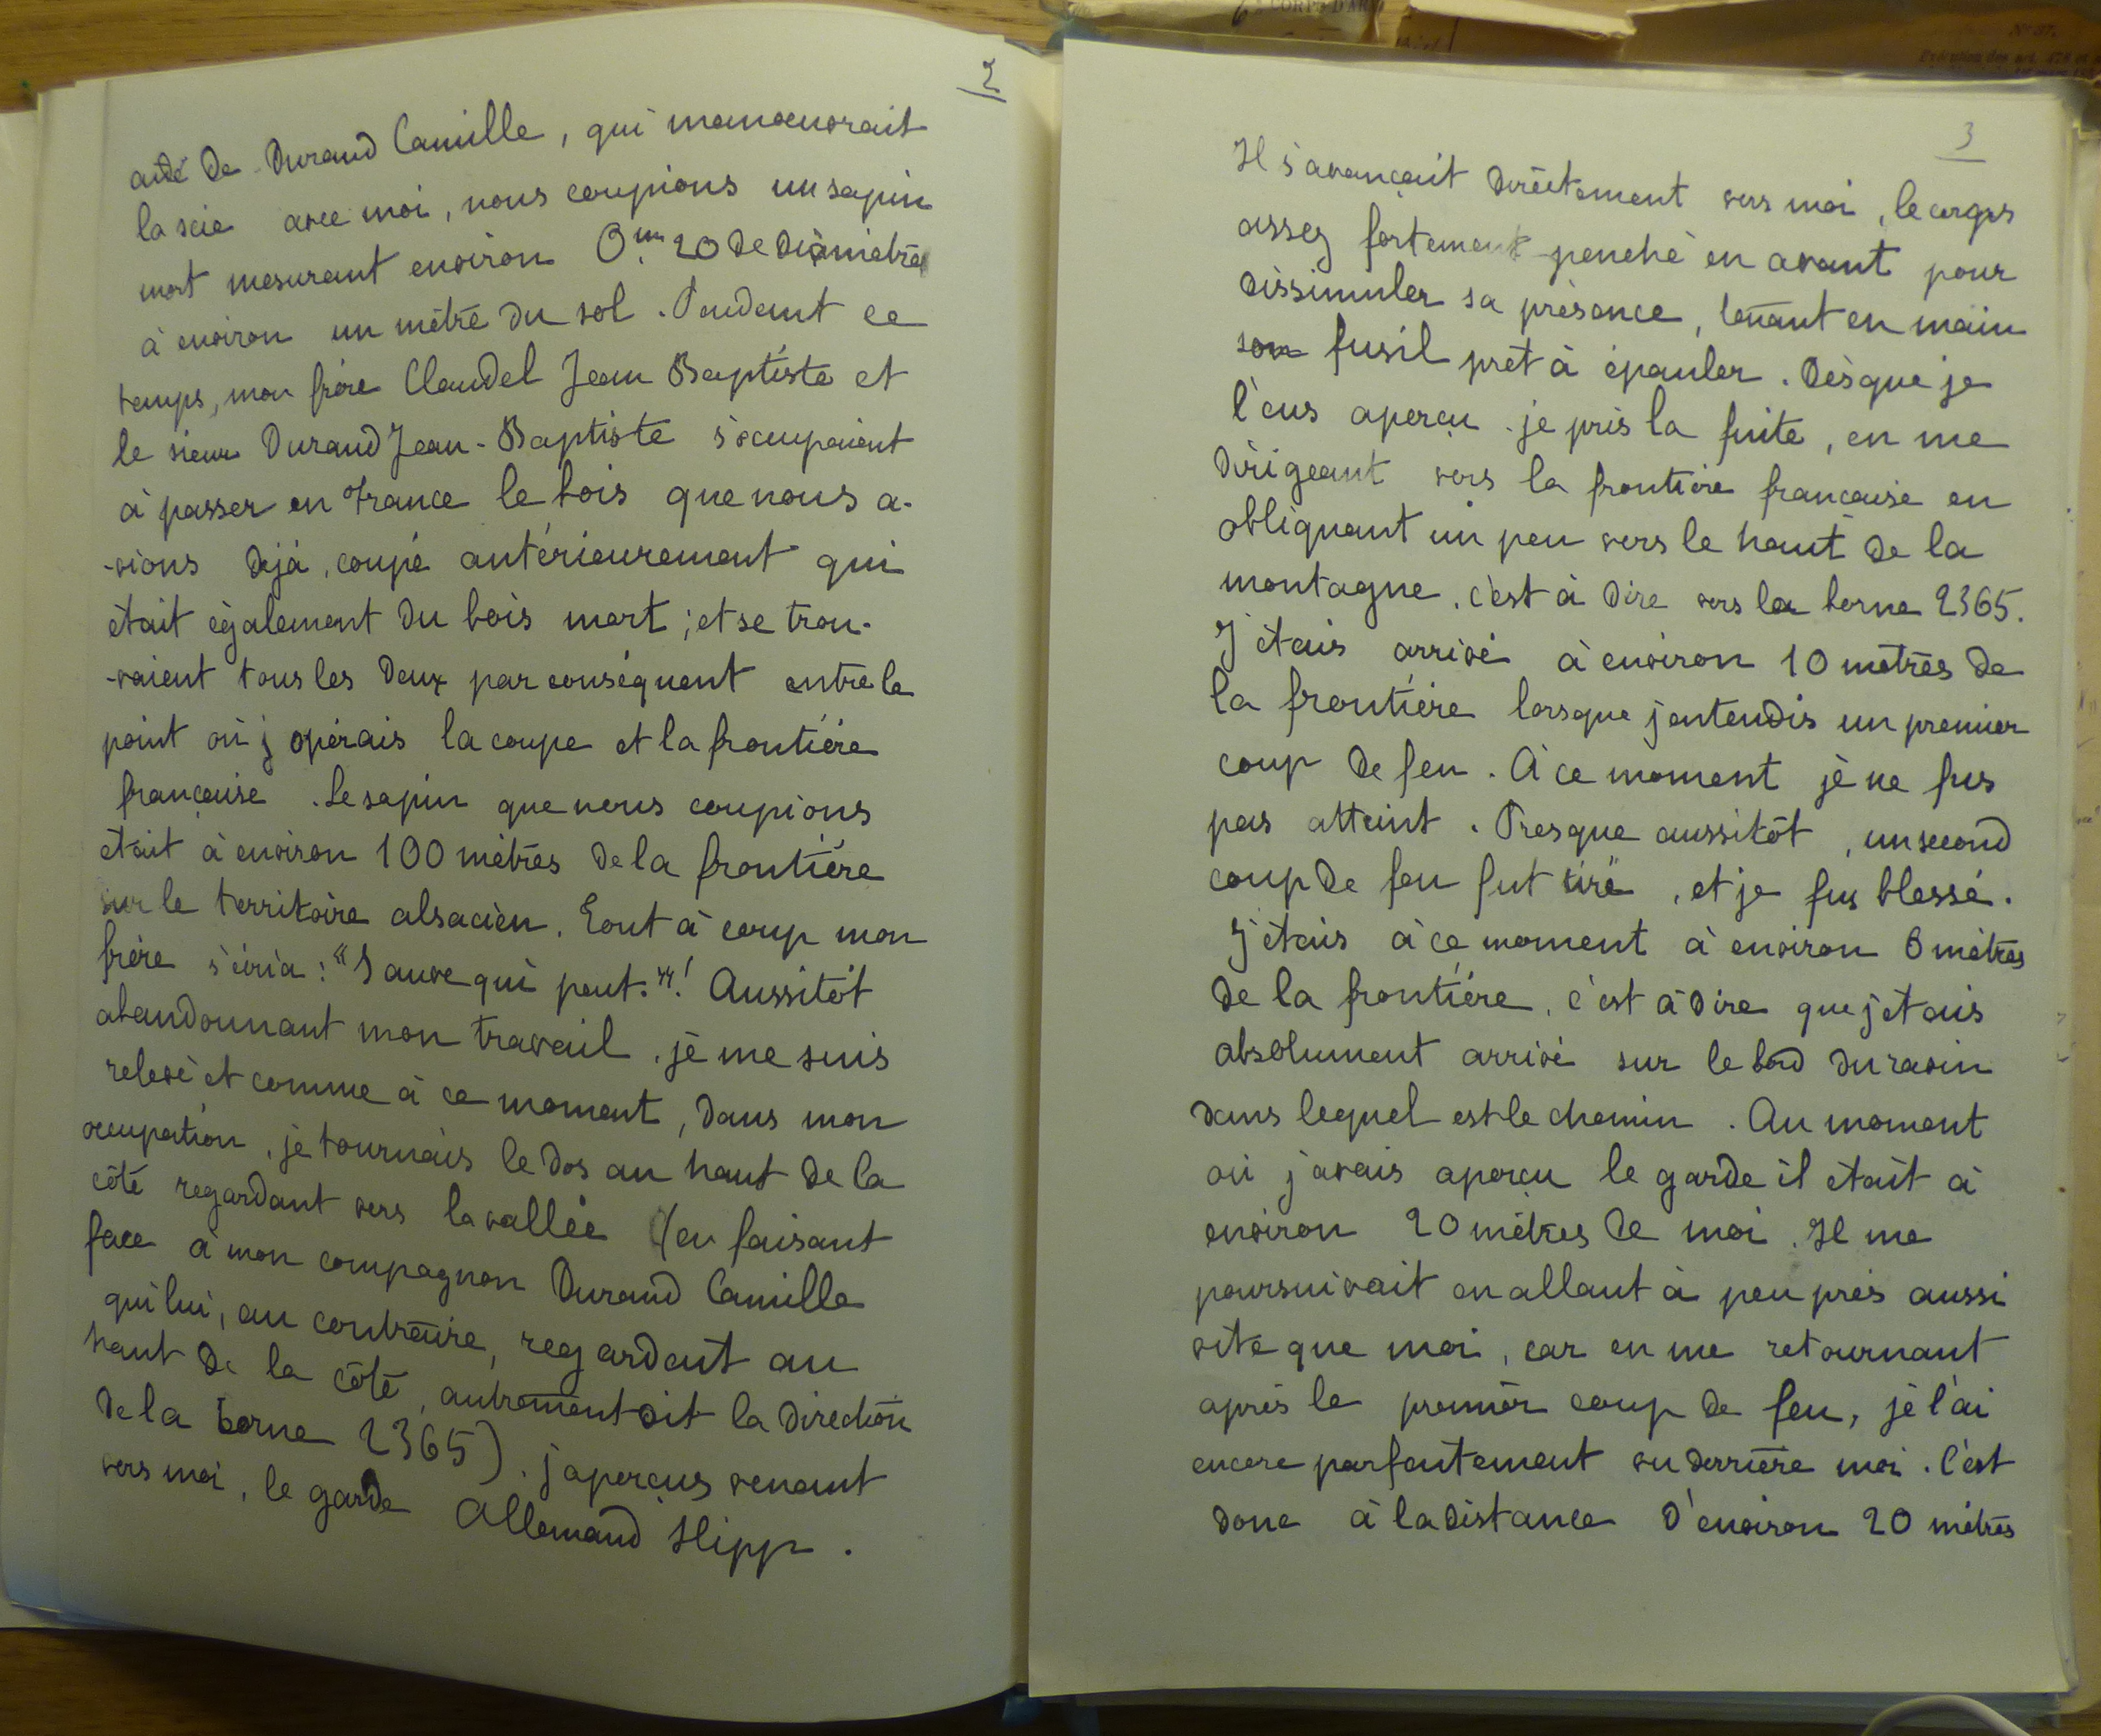 2
aidé de Durand Camille, qui manoeuvrait
la scie avec moi, nous coupions un sapin
mort mesurant environ 0m,20 de diamètre
à environ un mètre du sol. Pendant ce
temps, mon frère Claudel Jean Baptiste et
le sieur Durand Jean-Baptiste s'occupaient
à passer en France le bois que nous a-
-vions déjà, coupé antérieurement qui
était également du bois mort; et se trou-
-vaient tous les deux par conséquent entre le
point où j'opérais la coupe et la frontière
française. Le sapin que nous coupions
était à environ 100 mètres de la frontière
sur le territoire alsacien. Tout à coup mon
frère s'écria: "Sauve qui peut."! Aussitôt
abandonnant mon travail, je me suis
relevé et comme à ce moment, dans mon
occupation, je tournais le dos au haut de la
côté regardant vers la vallée (en faisant
face à mon compagnon Durand Camille
qui lui, au contraire, regardait au
haut de la côté, autrement dit la direction
de la borne 2365). j'aperçus venant
vers moi, le garde Allemand Hipp.
3
Il s'avançait directement vers moi, le corps
assez fortement penché en avant pour
dissimuler sa présence, tenant en main
son fusil prêt à épauler. Dès que je
l'eus aperçu je pris la fuite, en me
dirigeant vers la frontière française en
obliquant un peu vers le haut de la
montagne, c'est à dire vers la borne 2365.
J'étais arrivé à environ 10 mètres de
la frontière lorsque j'entendis un premier
coup de feu. À ce moment je ne fus
pas atteint. Presque aussitôt, un second
coup de feu fut tiré, et je fus blessé.
J'étais à ce moment à environ 6 mètres
de la frontière, c'est à dire que j'étais
absolument arrivé sur le bord du ravin
dans lequel est le chemin. Au moment
où j'avais aperçu le garde il était à
environ 20 mètres de moi. Il me
poursuivait en allant à peu près aussi
vite que moi, car en me retournant
après le premier coup de feu, je l'ai
encore parfaitement vu derrière moi. C'est
donc à la distance d'environ 20 mètres